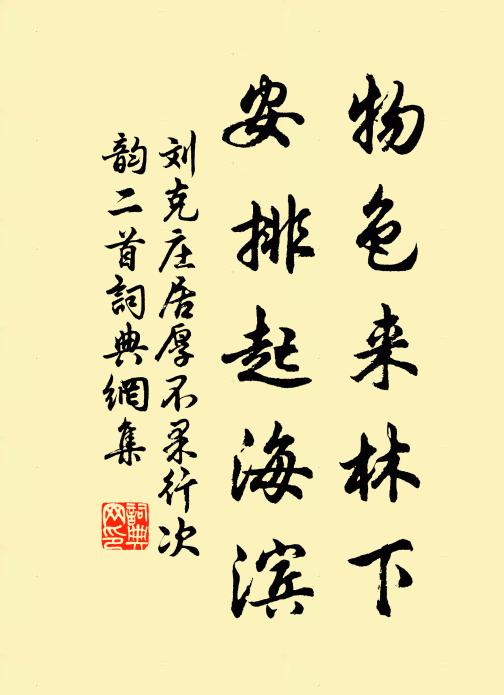 物色来林下
安排起海滨
刘克庄居厚不果行次
韵二首詞典網集
詞典
网印